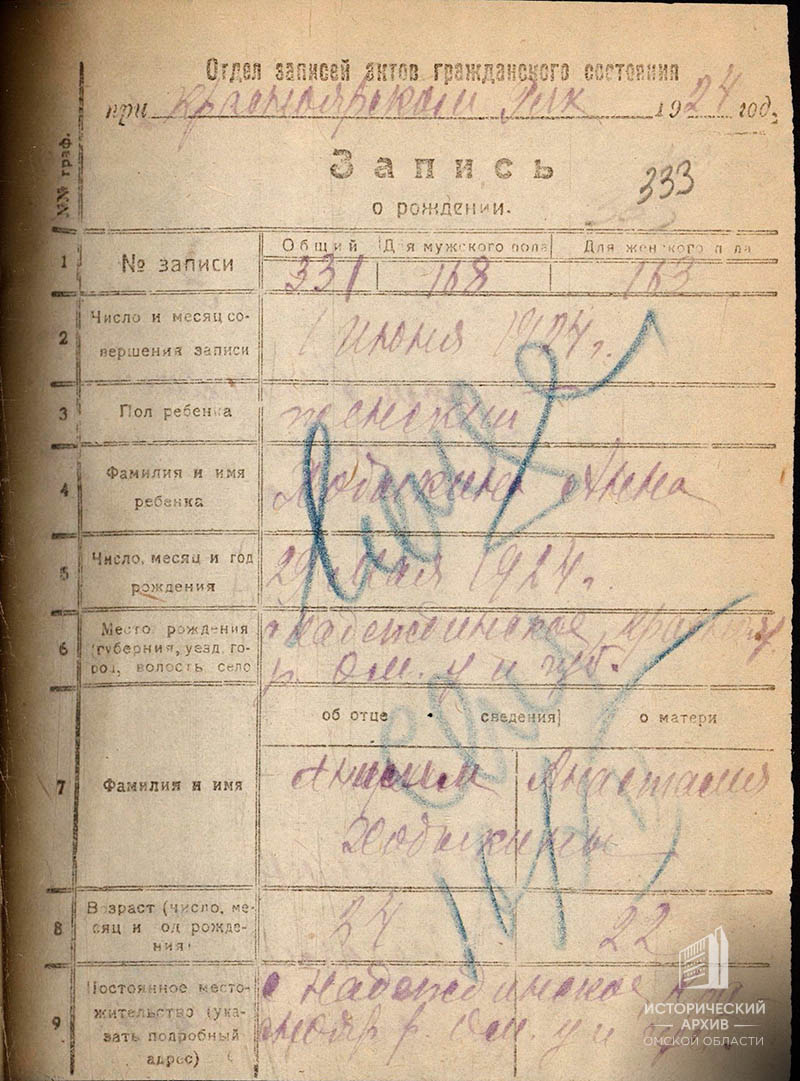 Отдел записей актов гражданского состояния
при Красноярском Рик 1924 год.
Запись
333
о рождении.
№№ граф.
Общий Для мужского пола Для женского пола
1 № записи 331 168 163
2 Число и месяц со-
вершения записи
1 Июня 1924 г.
3 Пол ребенка женский
4 Фамилия и имя
ребенка
Ходыкина Анна
5 Число, месяц и год
рождения
29 Мая 1924 г.
6 Место рождения
(губерния, уезд, го-
род, волость село
с Надеждинское
р. Ом. у и губ.
об отце сведения о матери
7 Фамилия и имя
Анисим Анастасия
Ходыкины
8 Возраст (число, ме-
сяц и год рожде-
ния)
24 22
9 Постоянное место-
жительство (ука-
зать подробный
адрес)
с Надеждинское
р Ом. у и
ИСТОРИЧЕСКИЙ
АРХИВ
ОМСКОЙ ОБЛАСТИ